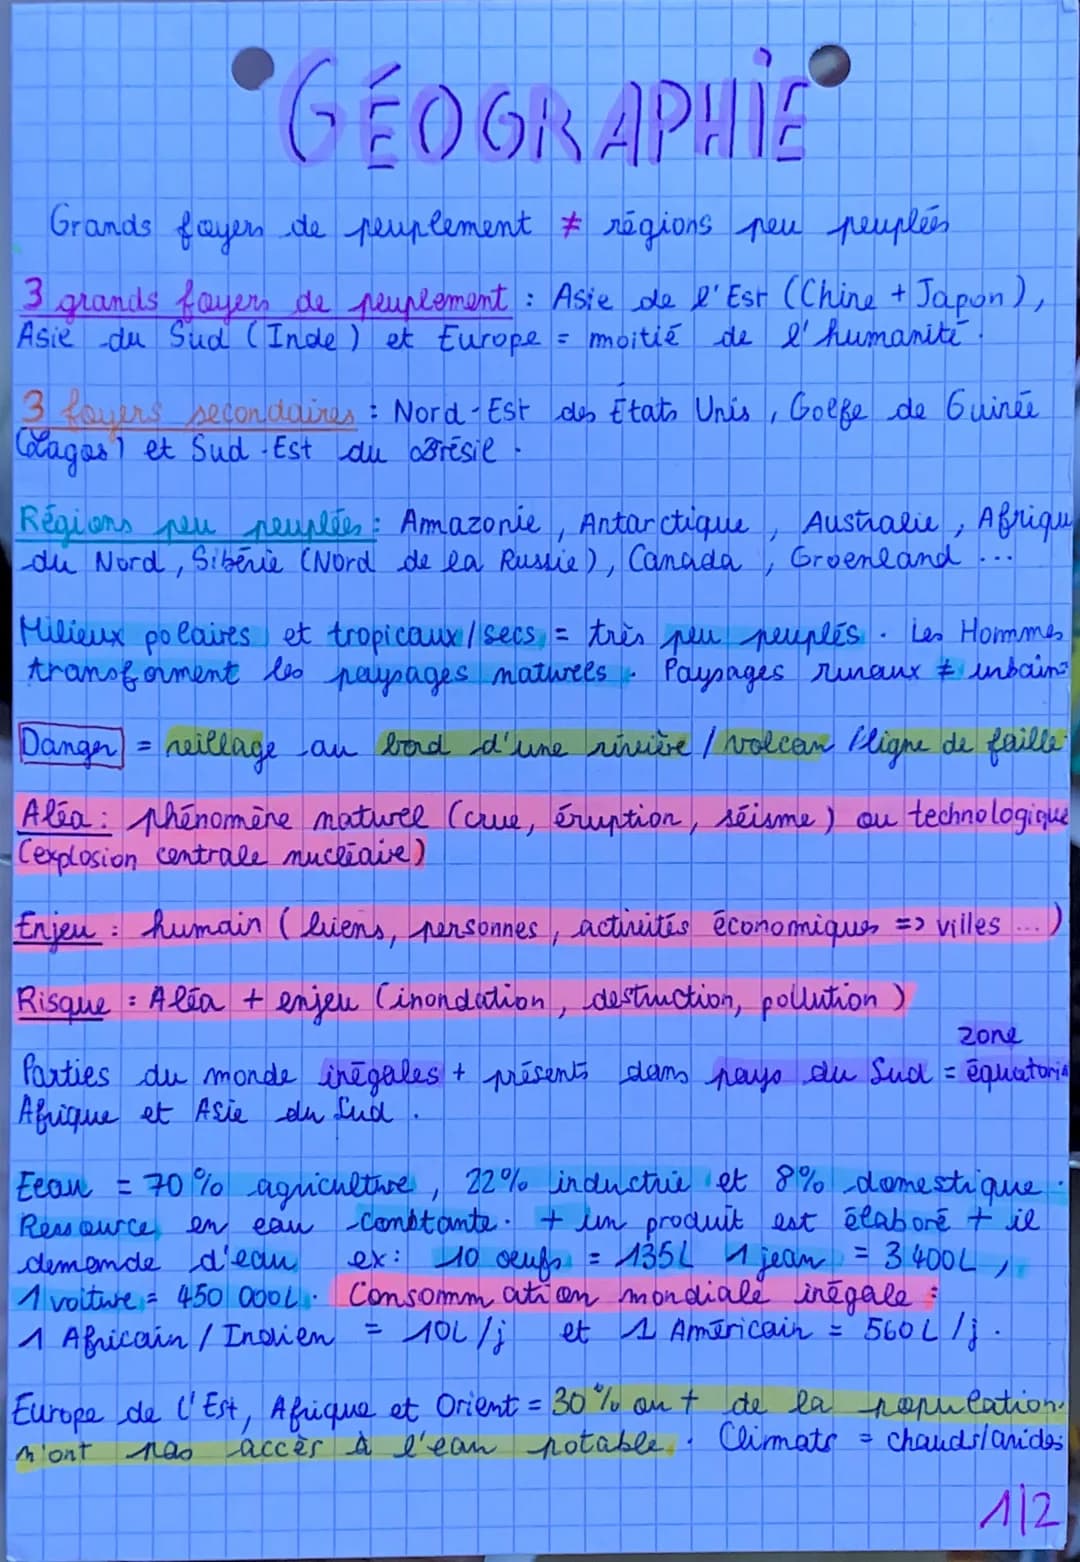 GÉOGRAPHIE
Grands foyers de peuplement ≠ régions peu peuplées
3 grands foyers de peuplement : Asie de l'Est (Chine + Japon),
Asie du Sud (Inde) et Europe = moitié de l'humanité.
3 foyers secondaires : Nord-Est des États Unis, Golfe de Guinée
(Lagos) et Sud-Est du Brésil.
Régions peu peuplées : Amazonie, Antarctique, Australie, Afrique
du Nord, Sibérie (Nord de la Russie), Canada, Groenland ...
Milieux polaires et tropicaux/secs = très peu peuplés. Les Hommes
transforment les paysages naturels. Paysages ruraux ≠ urbains
Danger = village au bord d'une rivière / volcan / ligne de faille
Aléa : phénomène naturel (crue, éruption, séisme) ou technologique
(explosion centrale nucléaire)
Enjeu : humain (biens, personnes, activités économiques => villes ...)
Risque : Aléa + enjeu (inondation, destruction, pollution)
zone
Parties du monde inégales + présents dans pays du Sud = équatoria
Afrique et Asie du Sud.
Eeau = 70% agriculture, 22% industrie et 8% domestique.
Ressource en eau constante. + un produit est élaboré + il
demande d'eau ex : 10 oeufs = 135L 1 jean = 3400L,
1 voiture = 450 000L. Consommation mondiale inégale :
1 Africain / Indien = 10L/j et 1 Américain = 560L/j.
Europe de l'Est, Afrique et Orient = 30% ou + de la population
n'ont pas accès à l'eau potable. Climats = chauds/arides
1/2